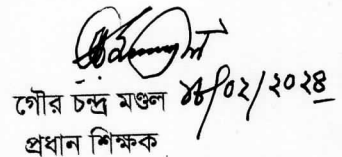 গৌর চন্দ্র মণ্ডল
০২/২০২৪
প্রধান শিক্ষক